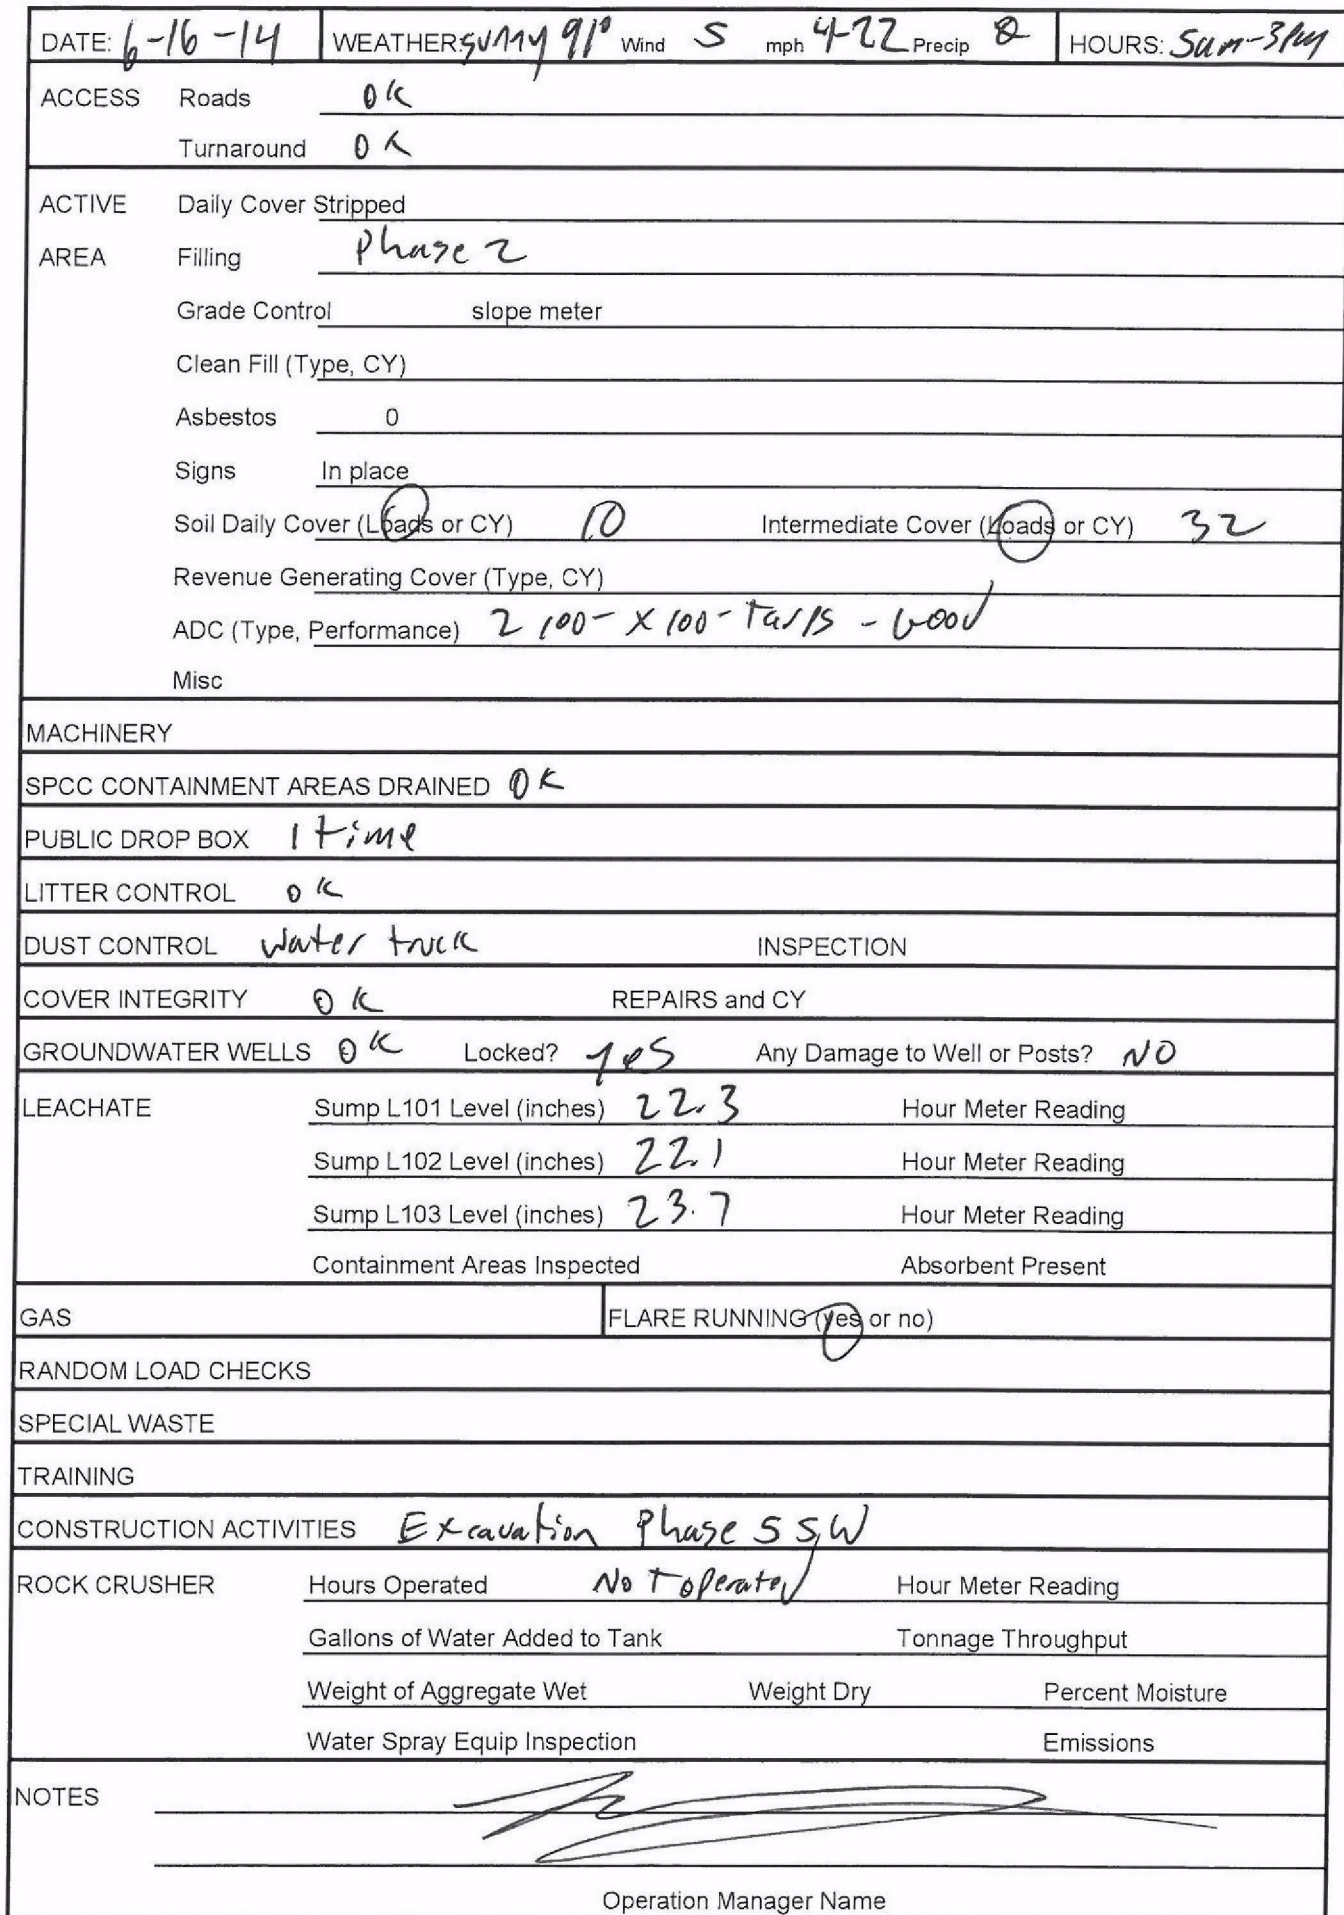 DATE: 6-16-14 WEATHER: sunny 91° Wind S mph 4-22 Precip 0 HOURS: 5am-3pm
ACCESS Roads OK
Turnaround OK
ACTIVE Daily Cover Stripped
AREA Filling Phase 2
Grade Control slope meter
Clean Fill (Type, CY)
Asbestos 0
Signs In place
Soil Daily Cover (Loads or CY) 10 Intermediate Cover (Loads or CY) 32
Revenue Generating Cover (Type, CY)
ADC (Type, Performance) 2 100- x 100- Tarps - Good
Misc
MACHINERY
SPCC CONTAINMENT AREAS DRAINED OK
PUBLIC DROP BOX 1 time
LITTER CONTROL OK
DUST CONTROL water truck INSPECTION
COVER INTEGRITY OK REPAIRS and CY
GROUNDWATER WELLS OK Locked? yes Any Damage to Well or Posts? NO
LEACHATE Sump L101 Level (inches) 22.3 Hour Meter Reading
Sump L102 Level (inches) 22.1 Hour Meter Reading
Sump L103 Level (inches) 23.7 Hour Meter Reading
Containment Areas Inspected Absorbent Present
GAS FLARE RUNNING (yes or no)
RANDOM LOAD CHECKS
SPECIAL WASTE
TRAINING
CONSTRUCTION ACTIVITIES Excavation Phase 5 SW
ROCK CRUSHER Hours Operated Not operated Hour Meter Reading
Gallons of Water Added to Tank Tonnage Throughput
Weight of Aggregate Wet Weight Dry Percent Moisture
Water Spray Equip Inspection Emissions
NOTES
Operation Manager Name